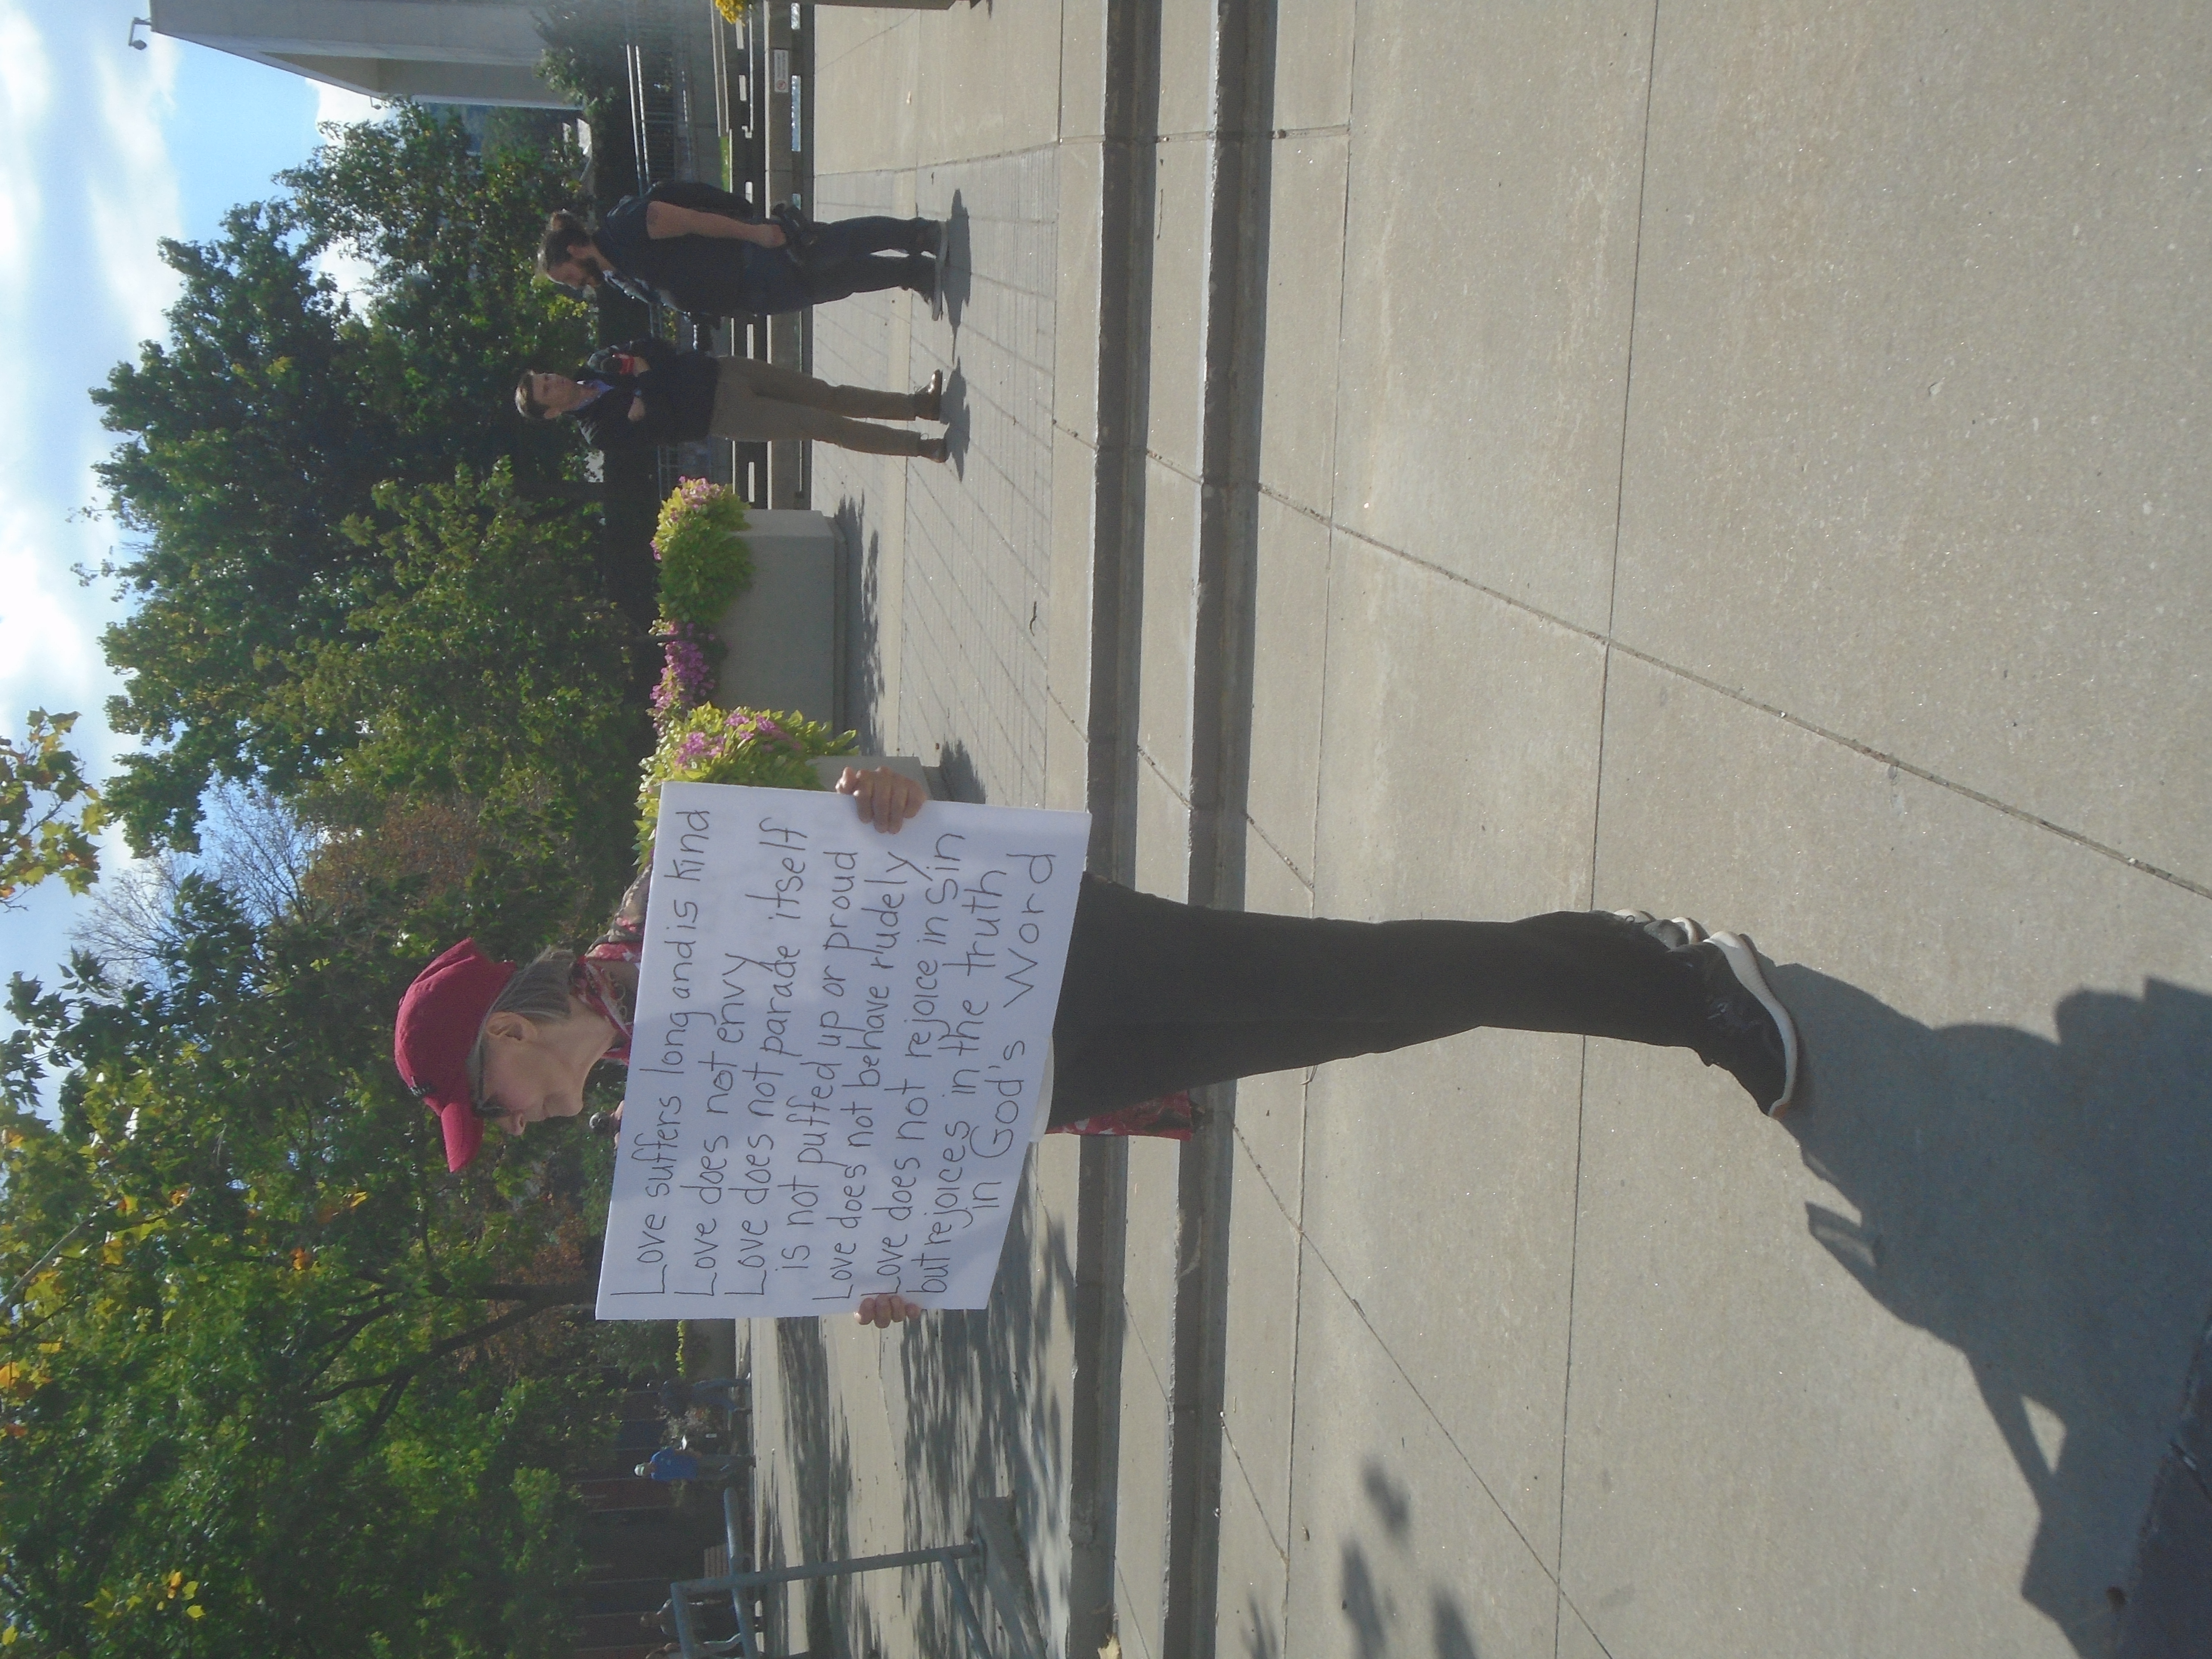 Love suffers long and is kind
Love does not envy
Love does not parade itself
is not puffed up or proud
Love does not behave rudely
Love does not rejoice in sin
but rejoices in the truth
in God's Word